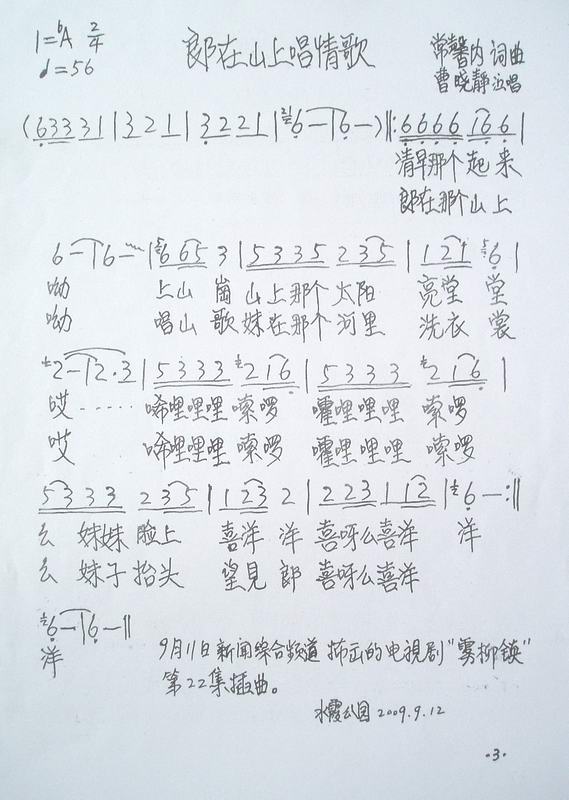 1=ᵇA 2/4
♩=56
郎在山上唱情歌
常馨内 词曲
曹晓静 泓唱
(6333 1|3 2 1|3 2 2 1|6—|6—)‖:6666 166|
清早那个起来
郎在那个山上
6—|6—|6 65 3|5335 235|1 21 6|
呦 上山 崗 山上那个 太阳 亮堂 堂
呦 唱山 歌 妹在那个 河里 洗衣 裳
2—|2·3|5333 216|5333 216|
哎····· 唏哩哩哩 嗦啰 嚯哩哩哩 嗦啰
哎 唏哩哩哩 嗦啰 嚯哩哩哩 嗦啰
5333 235|1 23 2|223 1 12|6—:‖
幺 妹妹 脸上 喜洋 洋 喜呀么喜洋 洋
幺 妹子 抬头 望見 郎 喜呀么喜洋
6—|6—‖
洋
9月11日新闻综合频道 播出的电視剧"雾柳镇"
第22集插曲。
水霞公园 2009.9.12
·3·